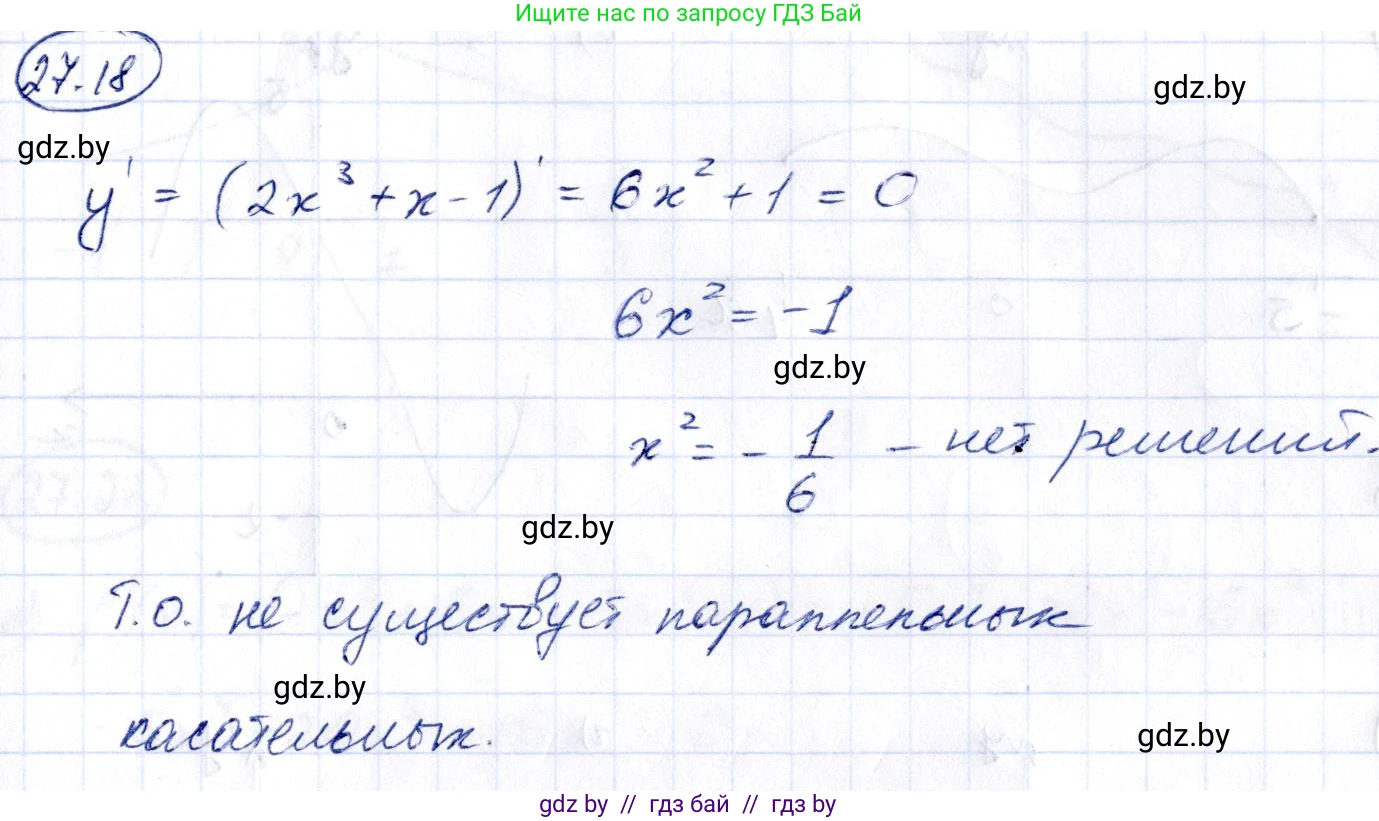 Ищите нас по запросу ГДЗ Бай
27.18
gdz.by
gdz.by
y' = (2x³ + x - 1)' = 6x² + 1 = 0
6x² = -1
gdz.by
x² = - 1/6 - нет решений.
gdz.by
Т.О. не существует параллельных
gdz.by
касательных.
gdz.by
gdz by // гдз бай // гдз by